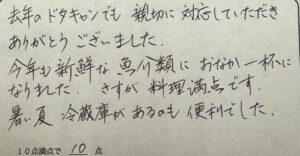 去年のドタキャンでも 親切に対応していただき
ありがとうございました.
今年も新鮮な魚介類に おなか一杯に
なりました. さすが 料理満点です.
暑い夏 冷蔵庫があるのも 便利でした.
10点満点で 10 点